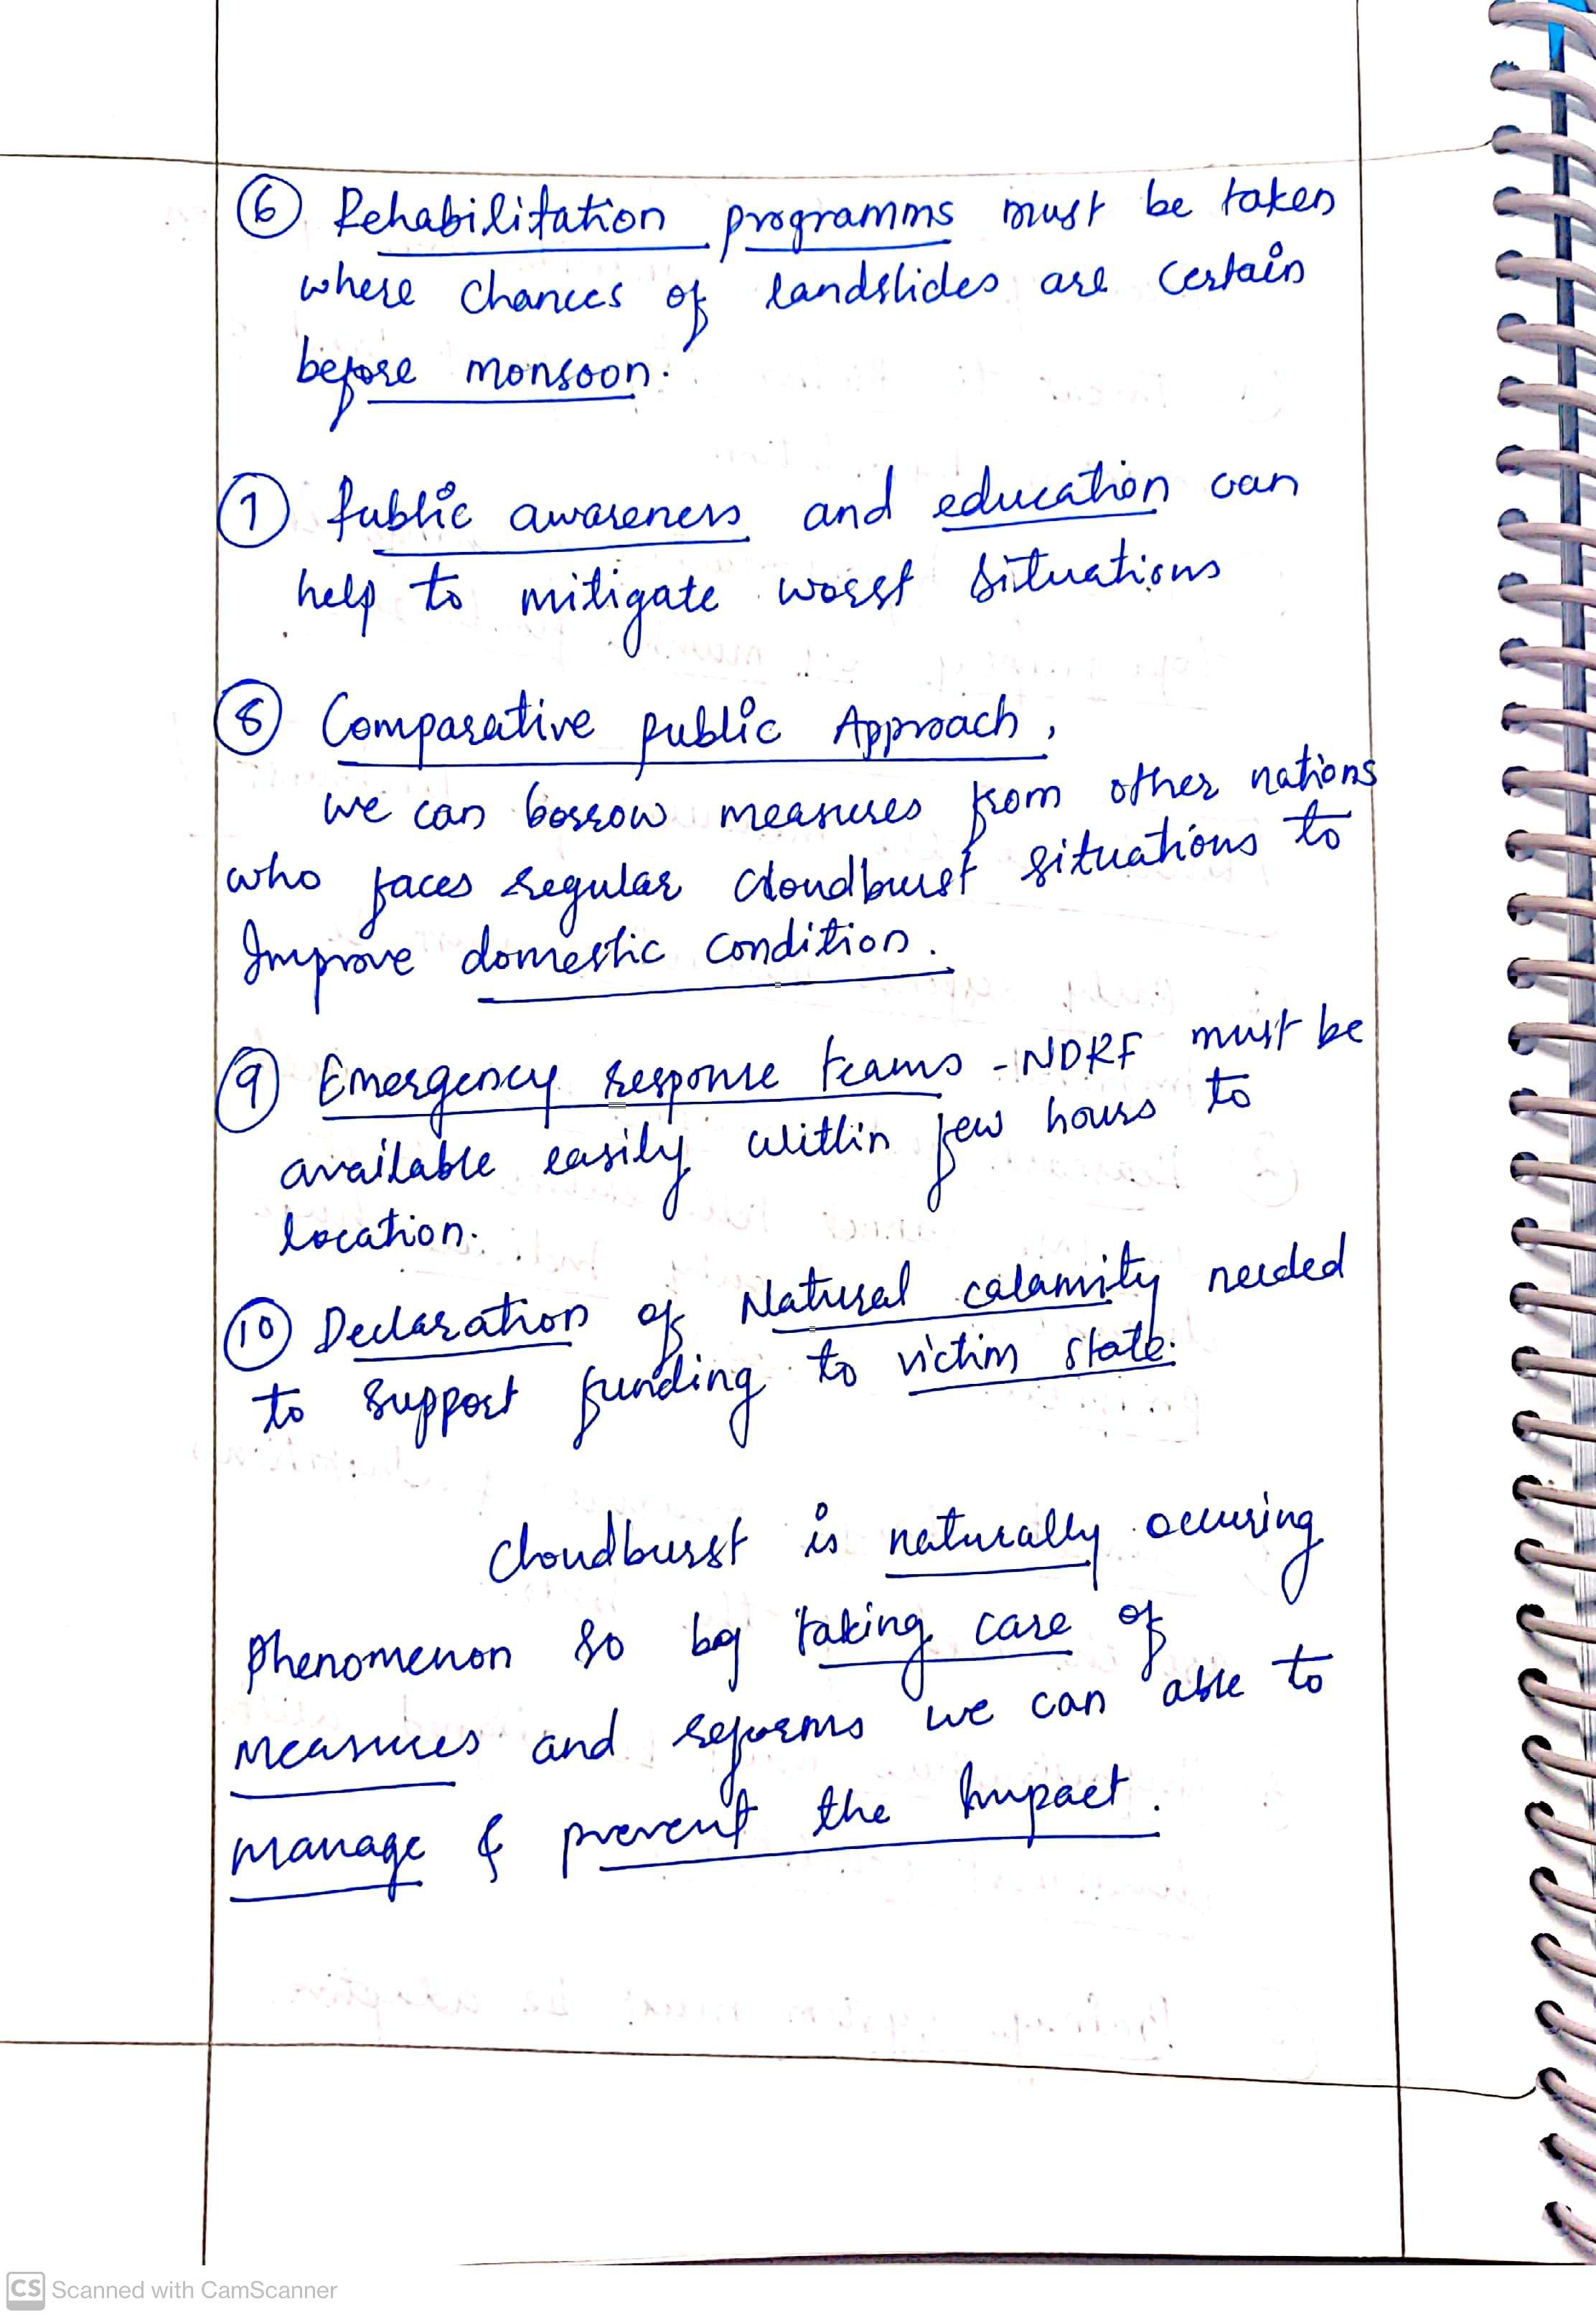 6 Rehabilitation programms must be taken
where chances of landslides are certain
before monsoon.
7 Public awareness and education can
help to mitigate worst situations
8 Comparative public Approach,
we can borrow measures from other nations
who faces regular cloudburst situations to
Improve domestic condition.
9 Emergency response teams - NDRF must be
available easily within few hours to
location.
10 Declaration of Natural calamity needed
to support funding to victim state.
Cloudburst is naturally occuring
phenomenon so by taking care of
measures and reforms we can able to
manage & prevent the Impact.
CS Scanned with CamScanner